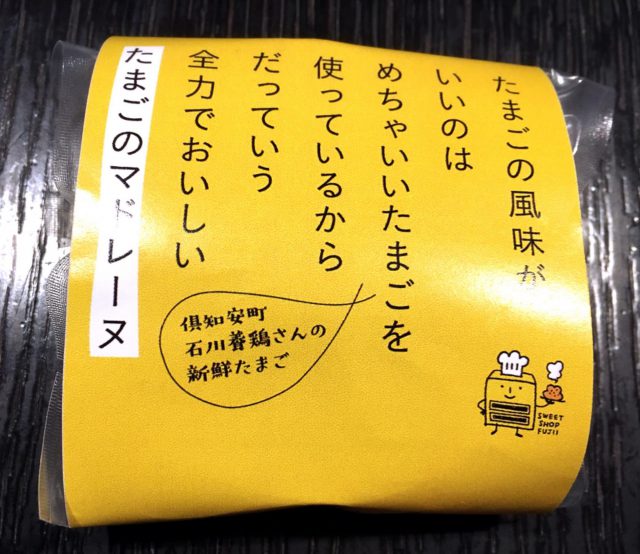 たまごの風味が
いいのは
めちゃいいたまごを
使っているから
だっていう
全力でおいしい
たまごのマドレーヌ
倶知安町
石川養鶏さんの
新鮮たまご
SWEET
SHOP
FUJII